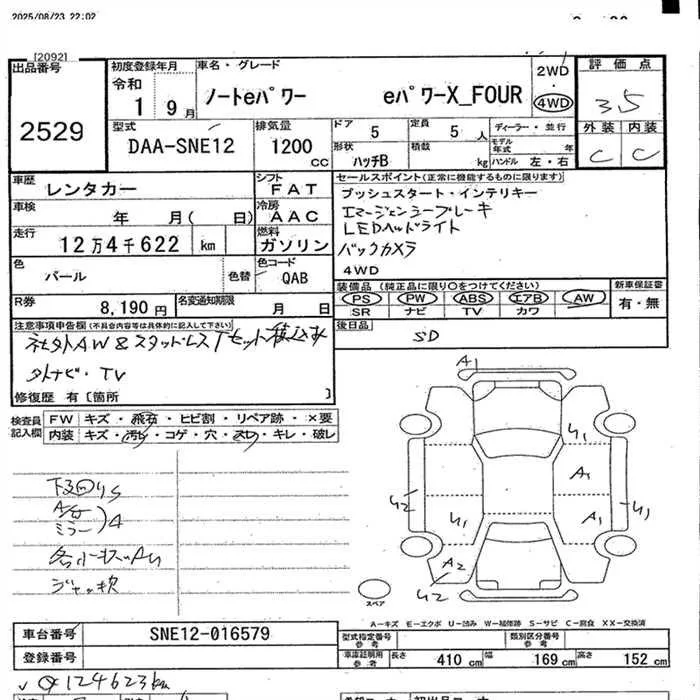 2025/08/23 22:02
[2092]
出品番号
2529
初度登録年月
令和
1 9月
車名・グレード
ノートeパワー eパワーX_FOUR
2WD
4WD
評価点
3.5
外装 内装
C C
型式
DAA-SNE12
排気量
1200 cc
ドア 5
定員 5 人
形状 ハッチB
積載 kg
ディーラー・並行
モデル年式 年
ハンドル 左・右
車歴 レンタカー
車検 年 月( 日)
走行 12万4千622 km
色 パール 色替
シフト FAT
冷房 AAC
燃料 ガソリン
色コード QAB
セールスポイント(正常に機能するものに限ります)
プッシュスタート・インテリキー
エマージェンシーブレーキ
LEDヘッドライト
バックカメラ
4WD
R券 8,190円
名変通知期限 月 日
装備品 (純正品に限り○をつけてください)
PS PW ABS エアB AW
SR ナビ TV カワ
新車保証書
有・無
注意事項申告欄(不具合内容等は具体的に記入して下さい)
社外AW&スタッドレスTセット積込済
外ナビ・TV
修復歴 有[箇所 ]
後日品 SD
検査員記入欄
FW キズ・飛石・ヒビ割・リペア跡・×要
内装 キズ・汚れ・コゲ・穴・スレ・キレ・破レ
下回りS
ミラー
A1
A1
A1
A2
スペア
A-キズ E-エクボ U-凹み W-補修跡 S-サビ C-腐食 XX-交換済
車台番号 SNE12-016579
登録番号
型式指定番号 参考
類別区分番号 参考
車庫証明用 参考
長さ 410 cm
幅 169 cm
高さ 152 cm
124623km